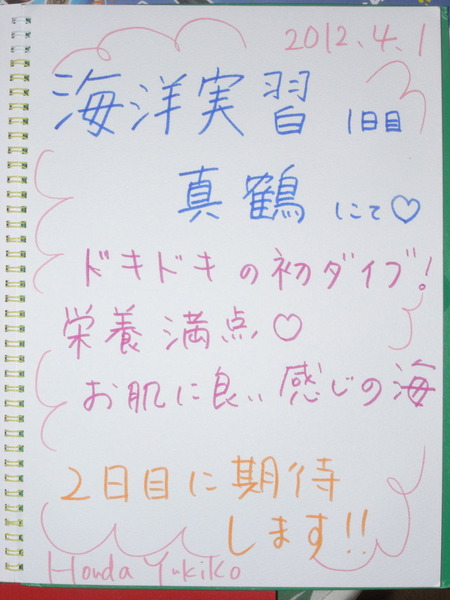 2012.4.1
海洋実習 1日目
真鶴にて♡
ドキドキの初ダイブ!
栄養満点♡
お肌に良い感じの海
2日目に期待
します!!
Honda Yukiko